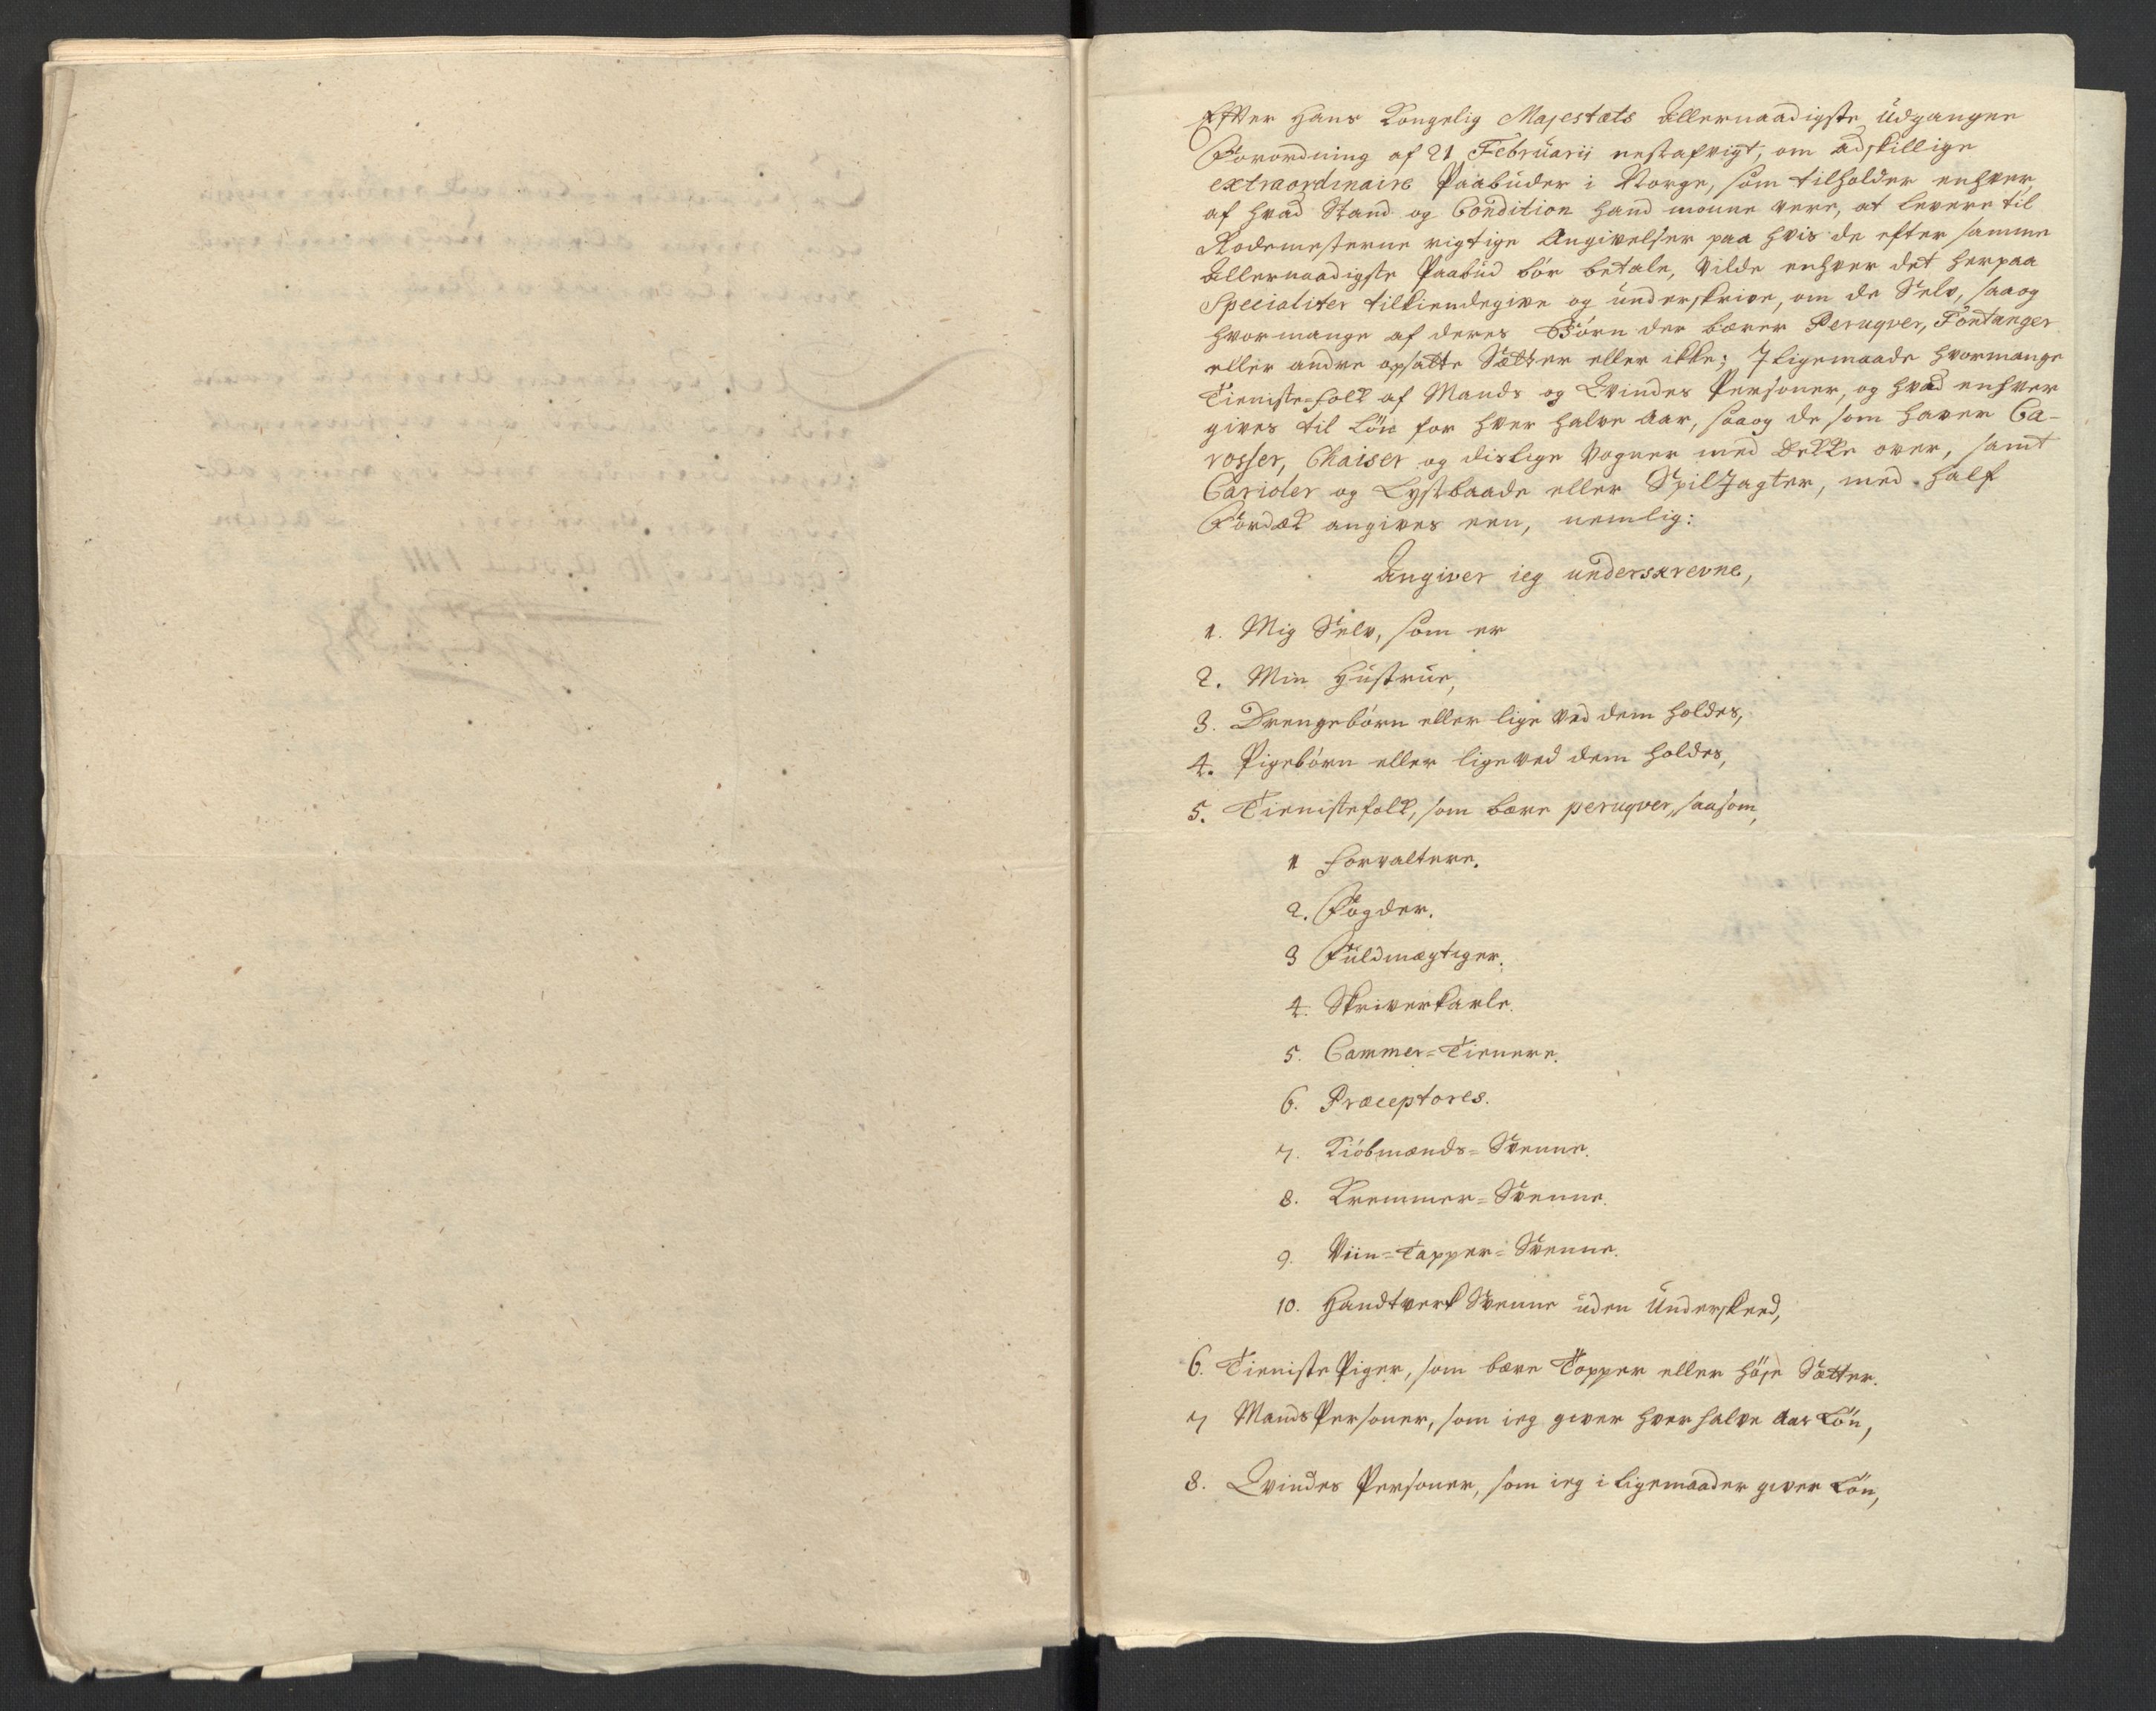 Efter Hans Kongelig Majestæts Allernaadigste Udgangne
Forordning af 21 Februarii nestafvigt, om adskillige
extraordinaire Paabuder i Norge, som tilholder enhver
af hvad Stand og Condition hand monne vere, at levere til
Rodemesterne rigtige Angivelser paa hvis de efter samme
Allernaadigste Paabud bór betale, vilde enhver det herpaa
Specialiter tilkiendegive og underskrive, om de Selv, saa og
hvormange af deres Børn der bærer Peruqver, Fontanger
eller andre opsatte Sætter eller ikke; Jligemaade hvormange
Tieniste-folk af Mands og Qvindes Personer, og hvad enhver
gives til Lön for hver halve Aar, saa og de som haver Ca-
rosser, Chaiser og dislige Vogner med Dekke over, samt
Carioler og Lystbaade eller SpilJagter, med half
Fordæk angives een, nemlig:
Angiver ieg underskrevne,
1. Mig Selv, som er
2. Min Hustrue,
3. Drengebórn eller lige ved dem holdes,
4. Pigebórn eller lige ved dem holdes,
5. Tienistefolk, som bære peruqver, saasom,
1 Forvaltere.
2. Fogder.
3 Fuldmægtiger.
4. Skriverkarle.
5. Cammer=Tienere.
6. Præceptores.
7. Kióbmænds=Svenne.
8. Kremmer=Svenne.
9. Viin=Tapper=Svenne.
10. Handtverk Svenne uden Underskeed,
6. Tieniste Piger, som bære Topper eller höje Sætter.
7 Mands Personer, som ieg giver hver halve Aar Lön,
8. Qvindes Personer, som ieg i ligemaader giver Lön,